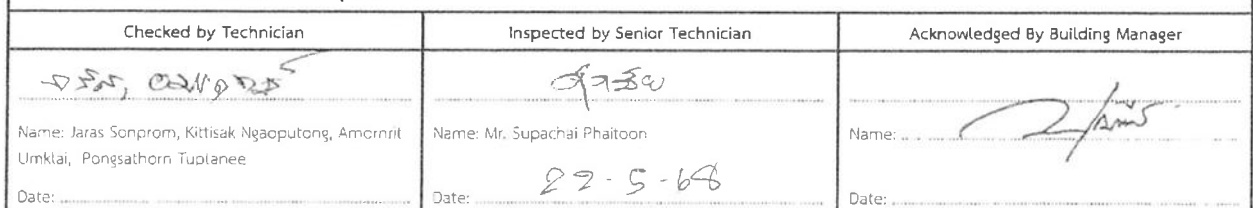 Checked by Technician
Inspected by Senior Technician
Acknowledged By Building Manager
จรัส,
ศุภชัย
Name: Jaras Sonprom, Kittisak Ngaoputong, Amornrit
Umklai, Pongsathorn Tuplanee
Name: Mr. Supachai Phaitoon
Name:
Date:
Date: 22-5-68
Date: